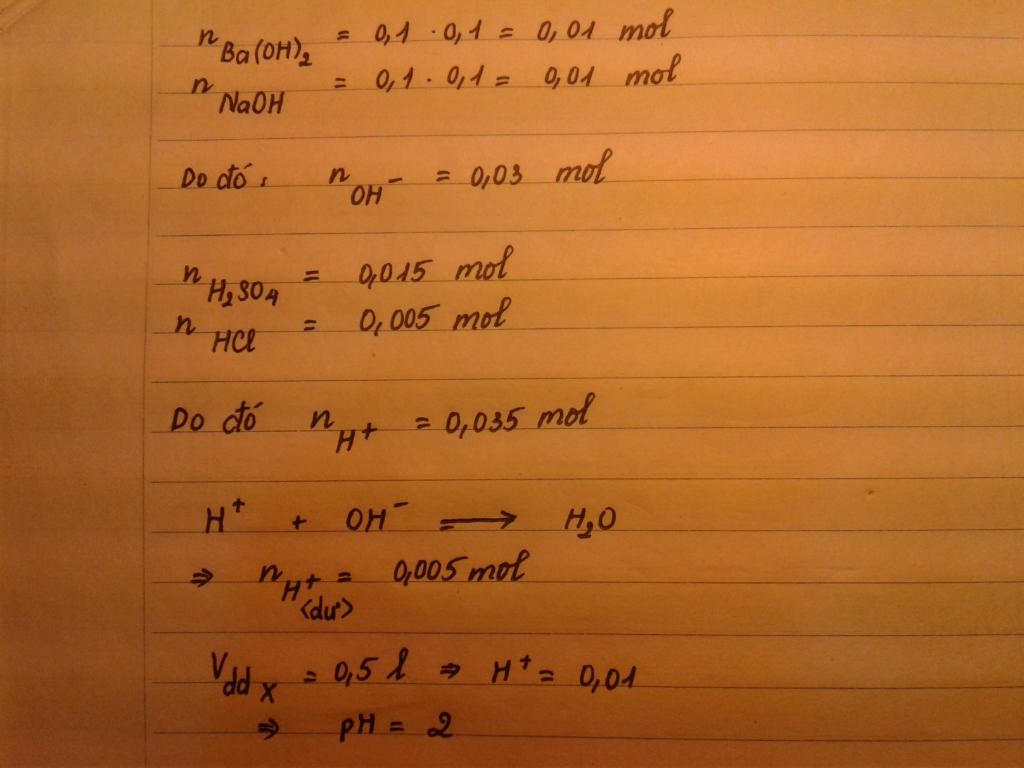 n Ba(OH)₂ = 0,1 · 0,1 = 0,01 mol
n NaOH = 0,1 · 0,1 = 0,01 mol
Do đó : n OH⁻ = 0,03 mol
n H₂SO₄ = 0,015 mol
n HCl = 0,005 mol
Do đó n H⁺ = 0,035 mol
H⁺ + OH⁻ ⟶ H₂O
⇒ n H⁺ <dư> = 0,005 mol
V dd X = 0,5 l ⇒ H⁺ = 0,01
⇒ pH = 2